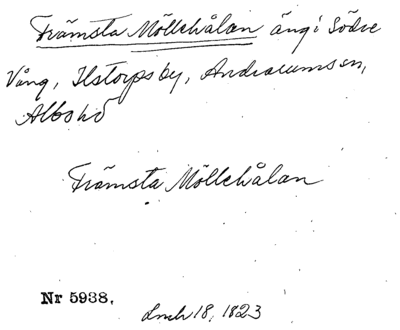 Främsta Möllehålan äng i Södre
Vång, Ilstorps by, Andrarums sn,
Albo hd
Främsta Möllehålan
Nr 5938.
Lmh 18, 1823